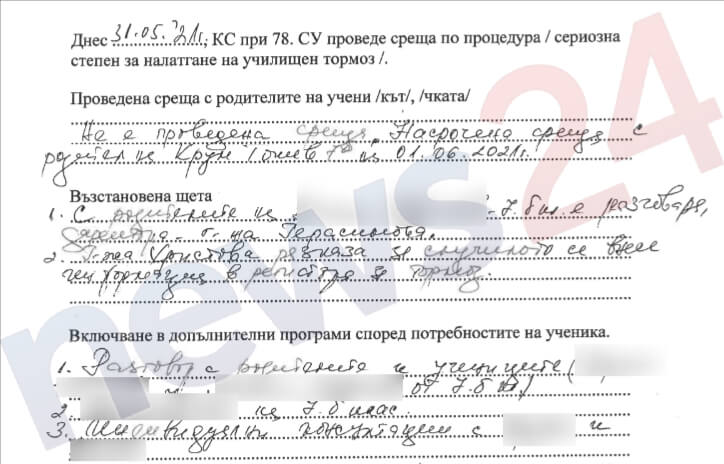 Днес 31.05.'21г., КС при 78. СУ проведе среща по процедура / сериозна
степен за налатгане на училищен тормоз /.
Проведена среща с родителите на учени /кът/, /чката/
Не е проведена среща. Насрочена среща с
родител на Крум 7 на 01.06.2021г.
Възстановена щета
1. С родителите на - 7.б кл. е разговаря,
г-жа Герасимова.
2. Г-жа Христова указа за случилото се
информация в регистъра за тормоз.
Включване в допълнителни програми според потребностите на ученика.
1. Разговор с родителите и учениците (
от 7.б кл)
2. на 7.б клас.
3. Индивидуални консултации с и
news24